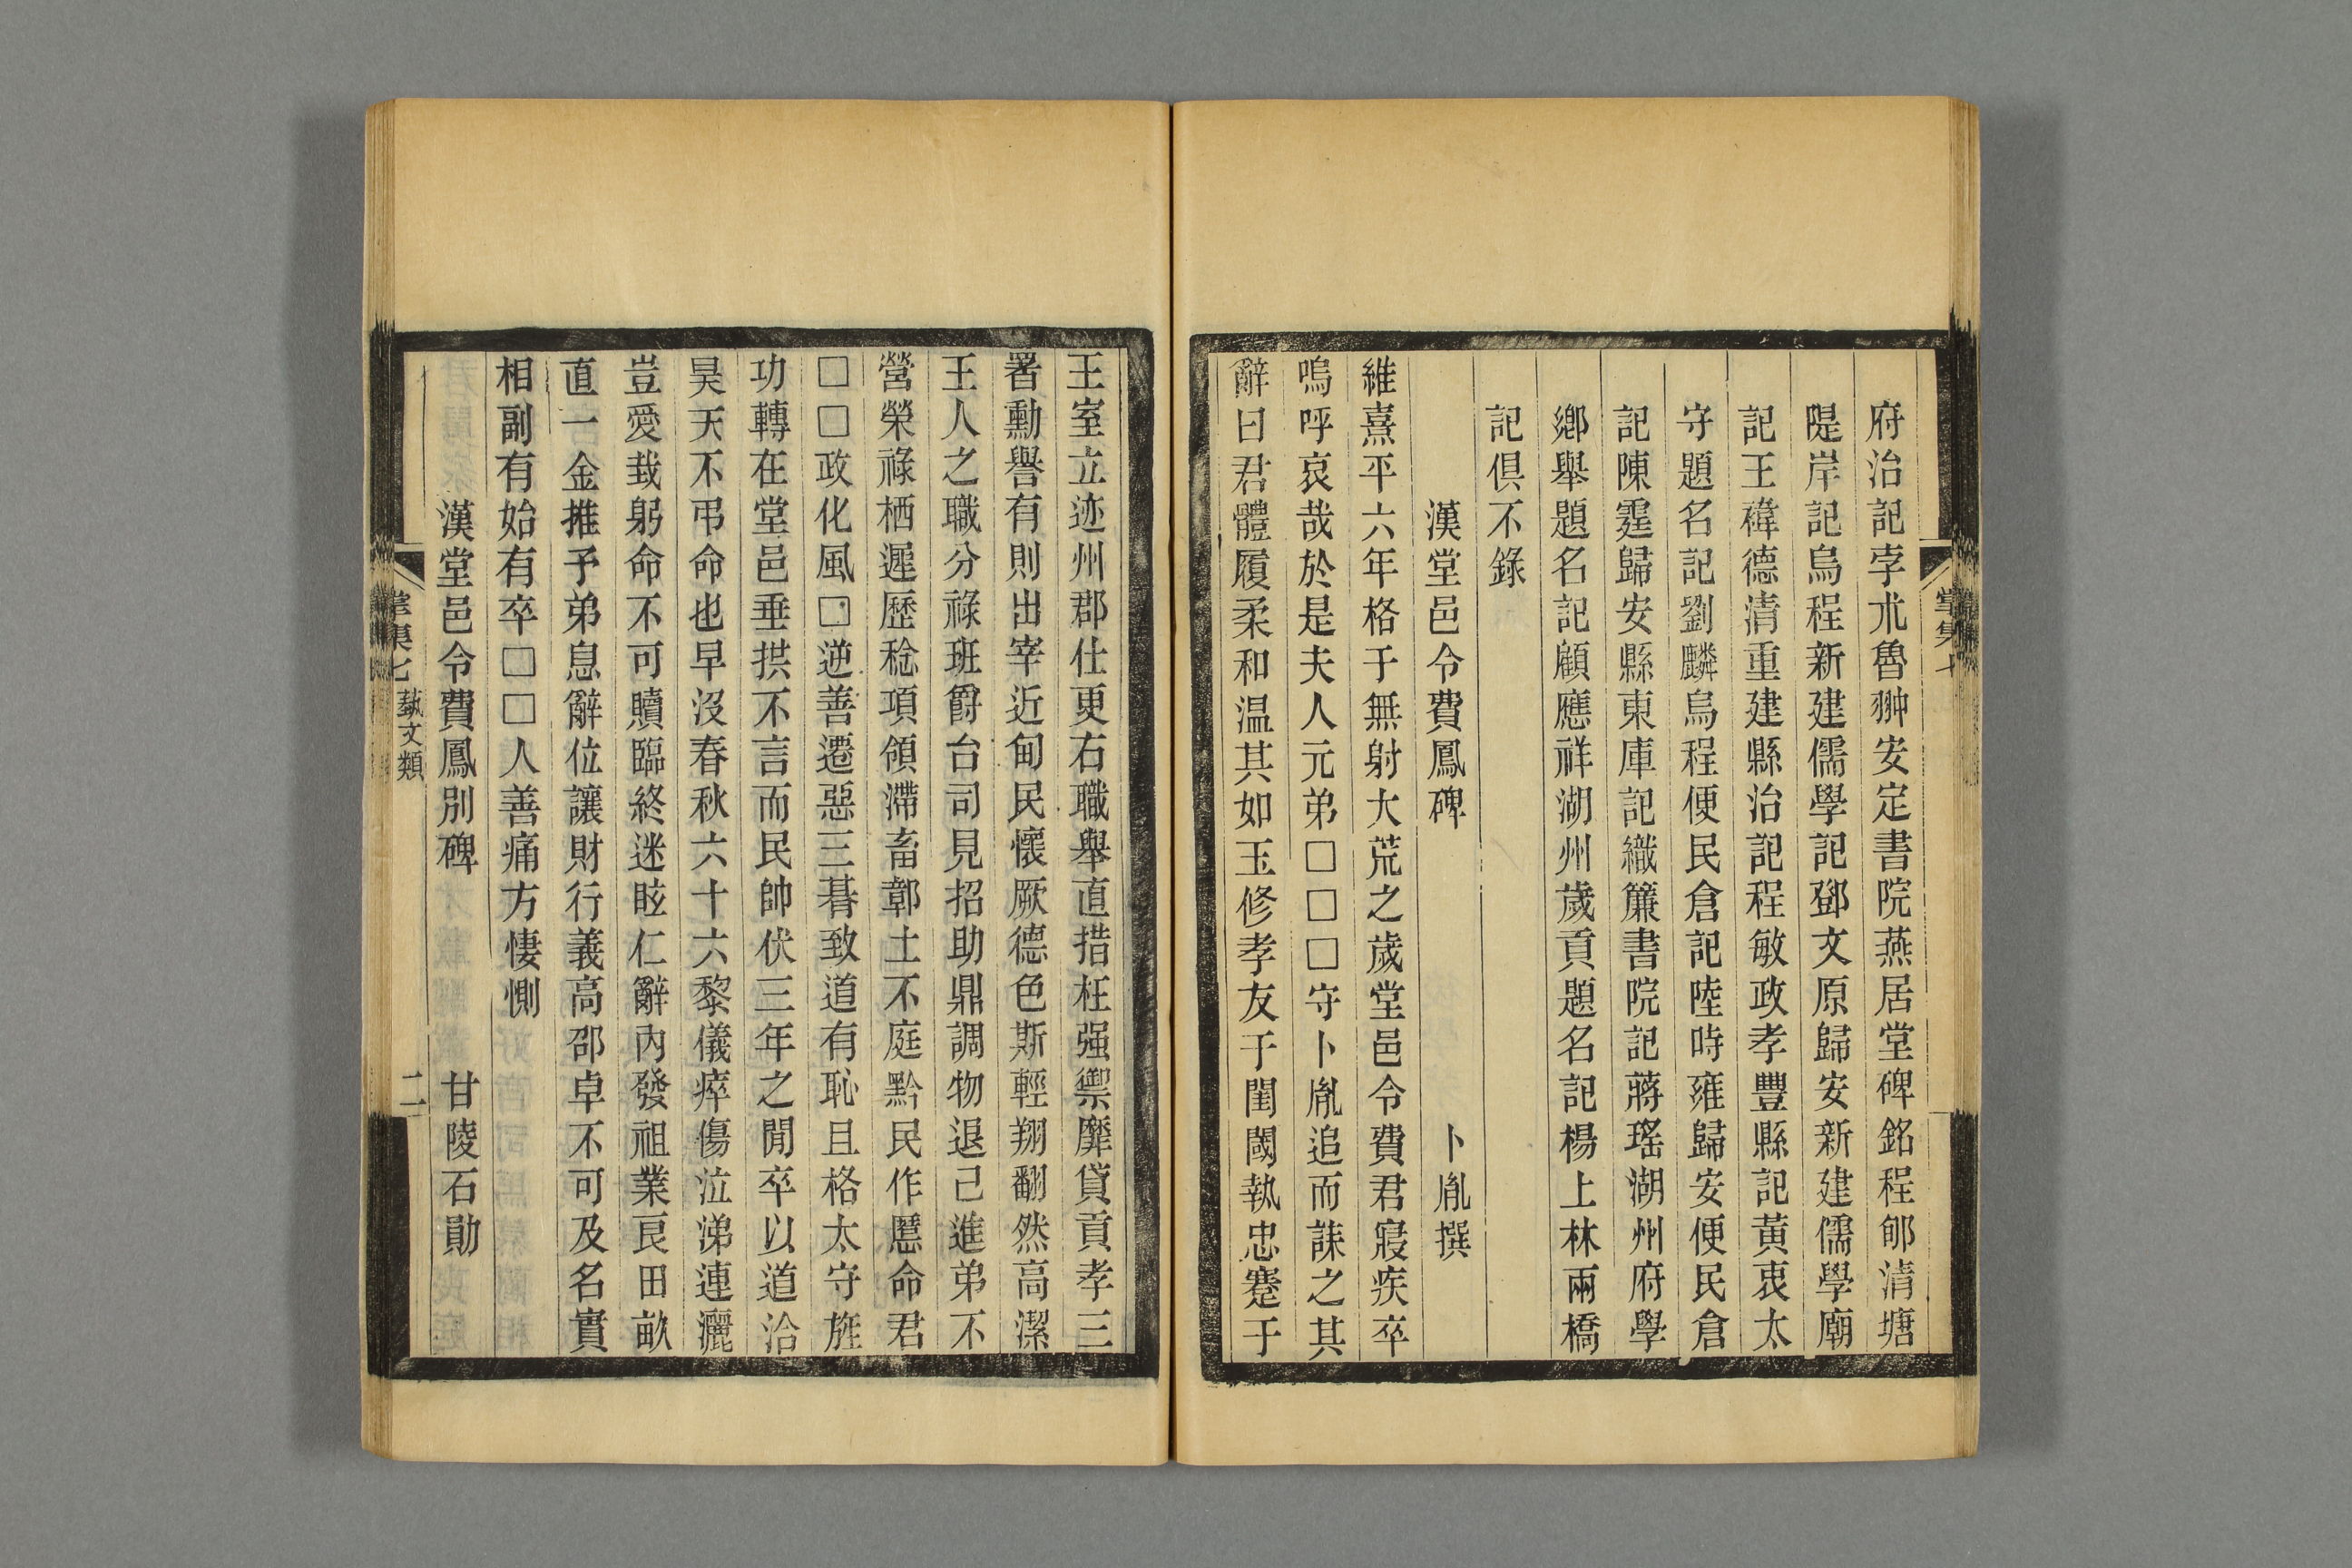 府治記孛朮魯翀安定書院燕居堂碑銘程郇清塘
隄岸記烏程新建儒學記鄧文原歸安新建儒學廟
記王褘德清重建縣治記程敏政孝豐縣記黄衷太
守題名記劉麟烏程便民倉記陸時雍歸安便民倉
記陳霆歸安縣東庫記織簾書院記蔣瑤湖州府學
鄉舉題名記顧應祥湖州歲貢題名記楊上林兩橋
記俱不錄
漢堂邑令費鳳碑 卜胤撰
維熹平六年格于無射大荒之歲堂邑令費君寢疾卒
嗚呼哀哉於是夫人元弟□□□守卜胤追而誄之其
辭曰君體履柔和温其如玉修孝友于閨閾執忠蹇于
王室立迹州郡仕更右職舉直措枉强禦靡貸貢孝三
署勳譽有則出宰近甸民懷厥德色斯輕翔翻然高潔
王人之職分祿班爵台司見招助鼎調物退己進弟不
營榮祿栖遲歷稔項領滯畜鄣土不庭黔民作慝命君
□□政化風□逆善遷惡三朞致道有恥且格太守旌
功轉在堂邑垂拱不言而民帥伏三年之閒卒以道洽
昊天不弔命也早沒春秋六十六黎儀瘁傷泣涕連灑
豈愛𢦏躬命不可贖臨終迷眩仁辭內發祖業良田畝
直一金推予弟息辭位讓財行義高邵卓不可及名實
相副有始有卒□□人善痛方悽惻
漢堂邑令費鳳別碑 甘陵石勛
掌集七 藝文類 二
掌集七